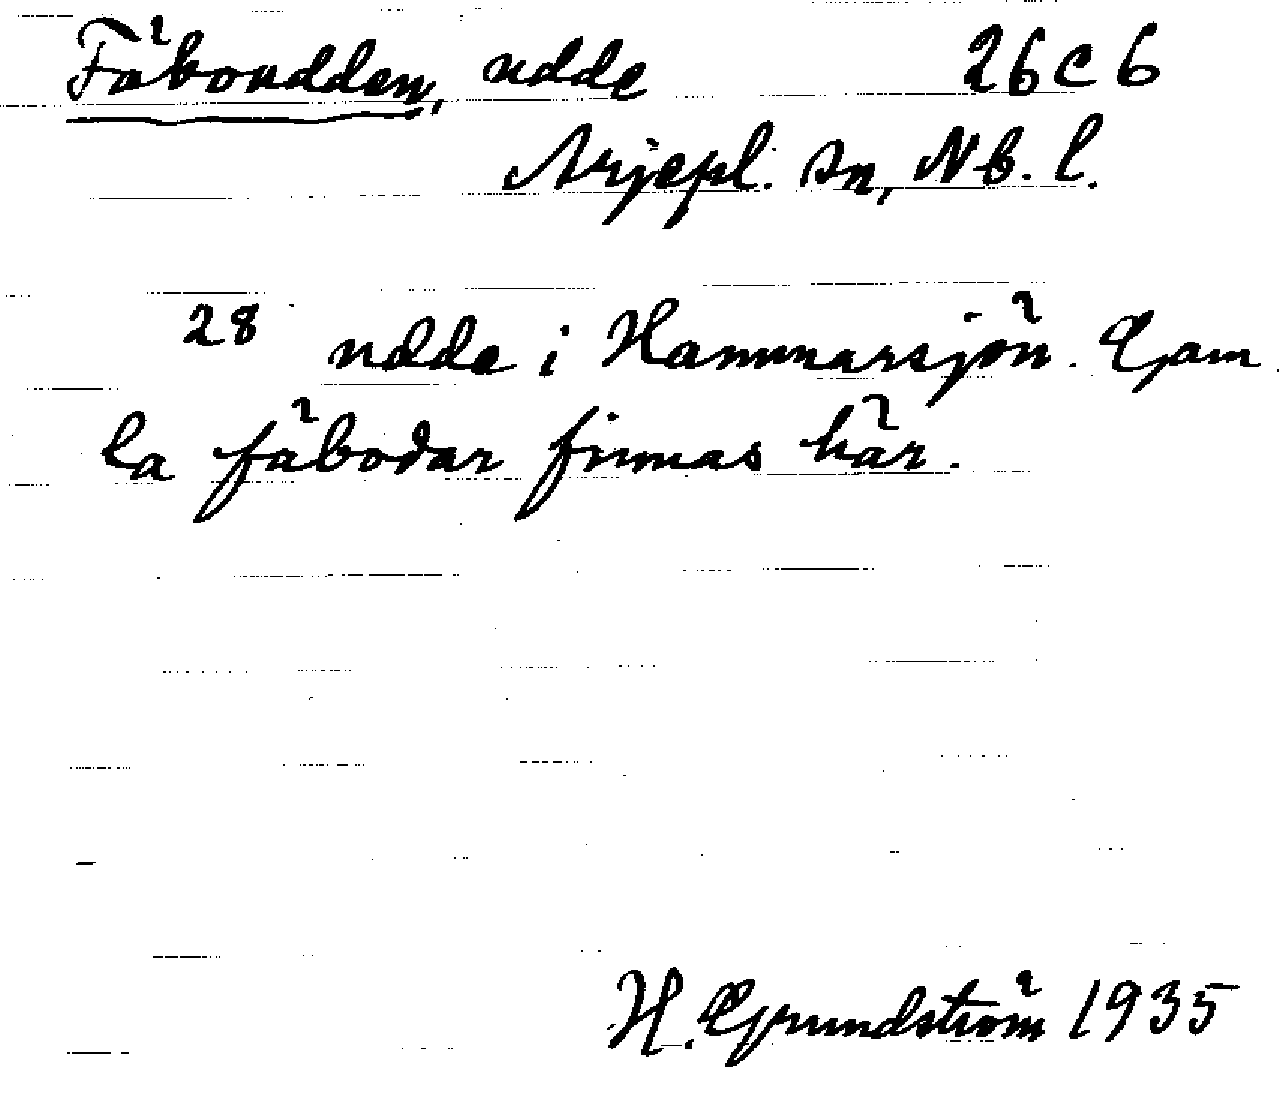 Fäboudden, udde 26 C 6
Arjepl. sn, Nb. l.
28 udde i Hammarsjön. Gam
la fäbodar finnas här.
H. Grundström 1935